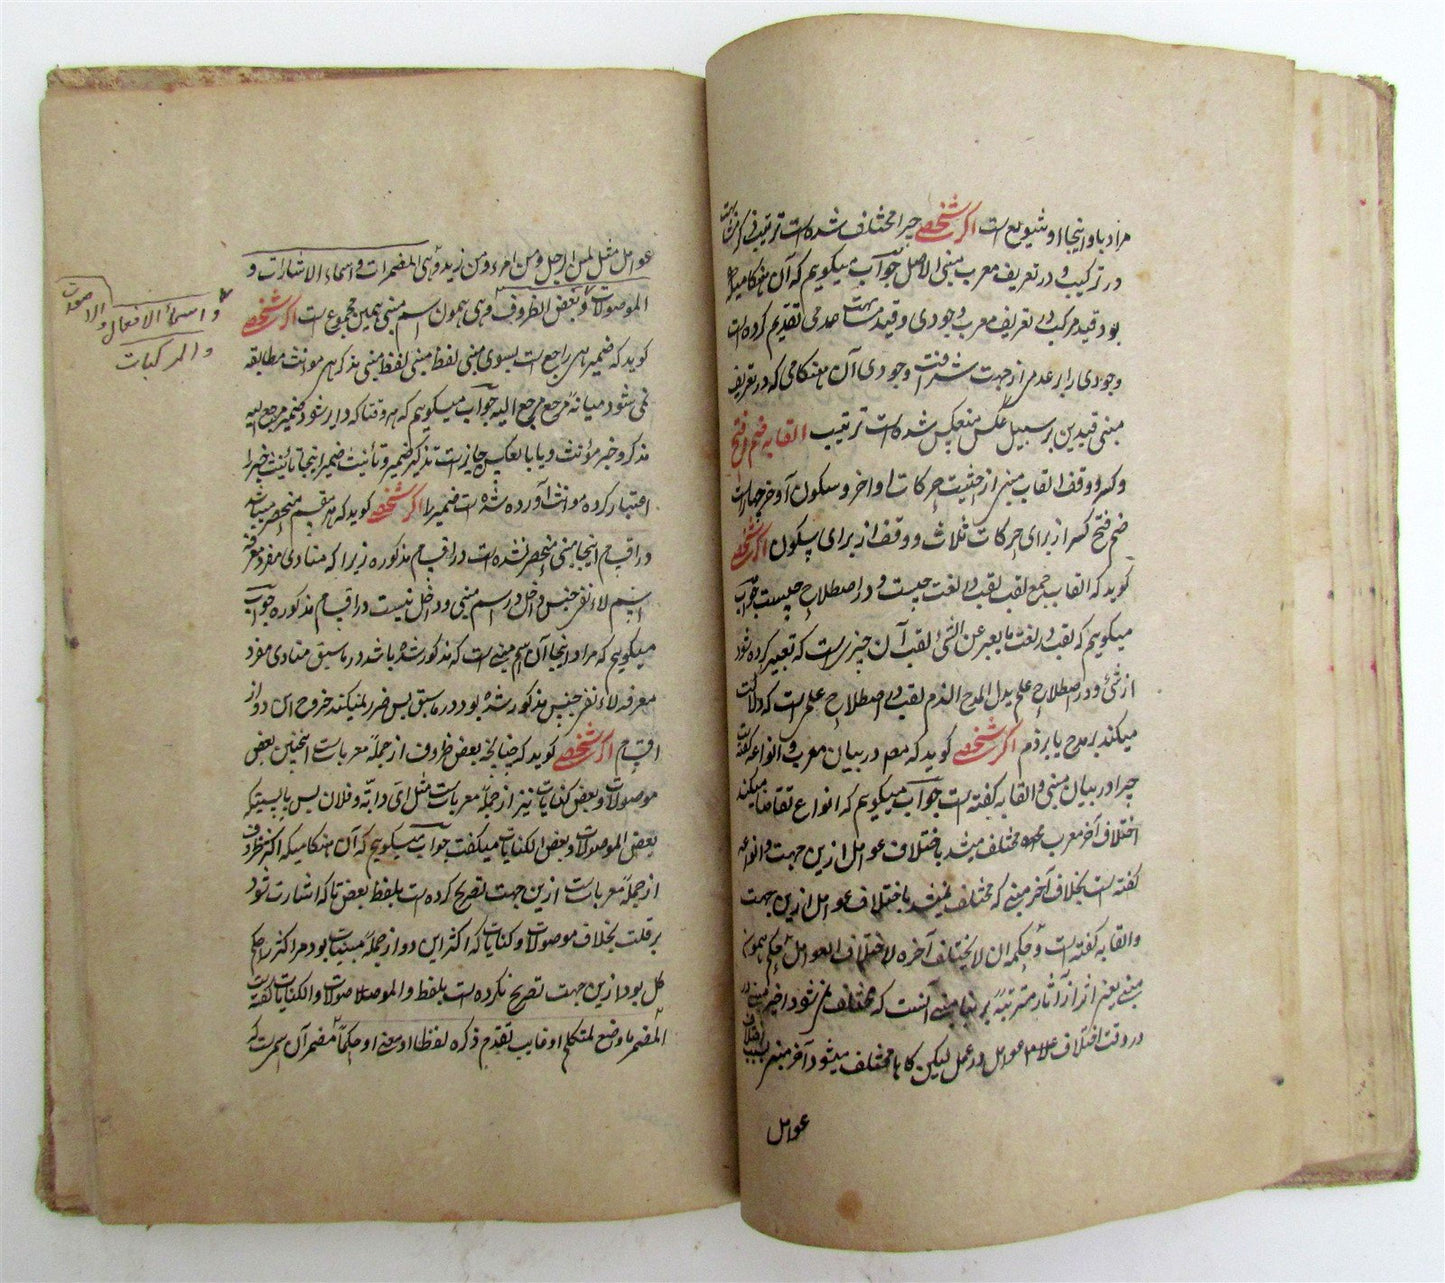 مراد باو اینجا او شیوع است اگر شخصے چرا مختلف شده است ترتیب
در ترکیب و در تعریف معرب مبنی الاصل جواب میگویم که آن هنگامیکه
بود قید مرکب در تعریف معرب وجودی و قید مشابهت عدمی تقدیم کرده است
وجودی را بر عدمی از جهت شرافت وجودی آن هنگامی که در تعریف
مبنی قیدین بر سبیل عکس منعکس شده است ترتیب القابه ضم و فتح
و کسر و وقف القاب مبنی از حیثیت حرکات اواخر و سکون آخر چهار است
ضم فتح کسر از برای حرکات ثلاث و وقف از برای سکون اگر شخصے
گوید که القاب جمع لقب لقب در لغت چیست و در اصطلاح چیست جواب
میگویم که لقب در لغت ما یعبر عن الشئ لقب آن چیزیست که تعبیر کرده شود
از شئ و در اصطلاح علم یدل المدح الذم لقب در اصطلاح علم است که دلالت
میکند بر مدح یا بر ذم اگر شخصے گوید که مص در بیان معرب و انواعه گفت
چرا در بیان مبنی و القابه گفته است جواب میگویم که انواع تقاضا میکند
اختلاف آخر معرب مختلف میشد باختلاف عوامل ازین جهت و انواعه
گفته است بخلاف آخر مبنی که مختلف نمیشد باختلاف عوامل ازین جهت
والقابه گفته است و حکمه ان لا یختلف آخره لاختلاف العوامل حکم
مبنی یعنی اثر از آثار مترتبه بر بنا مبنی آنست که مختلف نمی شود اخیر مبنی
در وقت اختلاف عوامل در عمل لیکن گاها مختلف میشود آخر مبنی
عوامل
عوامل مثل لمن الرجل و من امرء و من زید و هی المضمرات و اسماء الاشارات و
الموصولات و بعض الظروف و هی همون اسم مبنی همین مجموع است اگر شخصے
گوید که ضمیر هی راجع است بسوی مبنی لفظ مبنی لفظ مبنی مذکر هی مونث مطابقه
نمی شود میانه مرجع مرجع الیه جواب میگویم که هر وقتا که دایر شود ضمیر مرجع الیه
مذکر و خبر مؤنث و یا بالعکس جایز است تذکیر ضمیر و تأنیث ضمیر اینجا تأنیث خبر را
اعتبار کرده مونث آورده شده است ضمیر را اگر شخصے گوید که هر مقسم منحصر میباشد
در اقسام اینجا مبنی منحصر نشده است در اقسام مذکوره زیرا که منادی مفرد معرفه
اسم لاء نفی جنس داخل در اسم مبنی و داخل نیست در اقسام مذکوره جواب
میگویم که مراد اینجا آن اسم مبنی است که مذکور شده باشد در ما سبق منادی مفرد
معرفه لاء نفی جنس مذکور شده بود در ما سبق پس ضرر نمیکند خروج این دو از
اقسام اگر شخصے گوید که چنانچه بعض ظروف از جمله معربات است همچنین بعض
موصولات و بعض کنایات نیز از جمله معربات مثل ای دابة و فلان پس بایستیکه
بعض الموصولات و بعض الکنایات میگفت جواب میگویم که آن هنگامیکه اکثر ظروف
از جمله معربات است ازین جهت تصریح کرده است بلفظ بعض تا که اشارت شود
بر قلت بخلاف موصولات و کنایات که اکثر این دو از جمله مبنیات بود مر اکثر را حکم
کل بود ازین جهت تصریح نکرده است بلفظ و الموصولات و الکنایات گفته است
المضمر ما وضع لمتکلم او غایب تقدم ذکره لفظا او معنی او حکما مضمر آن اسمست که
و اسماء الافعال و الاصوات
و المرکبات